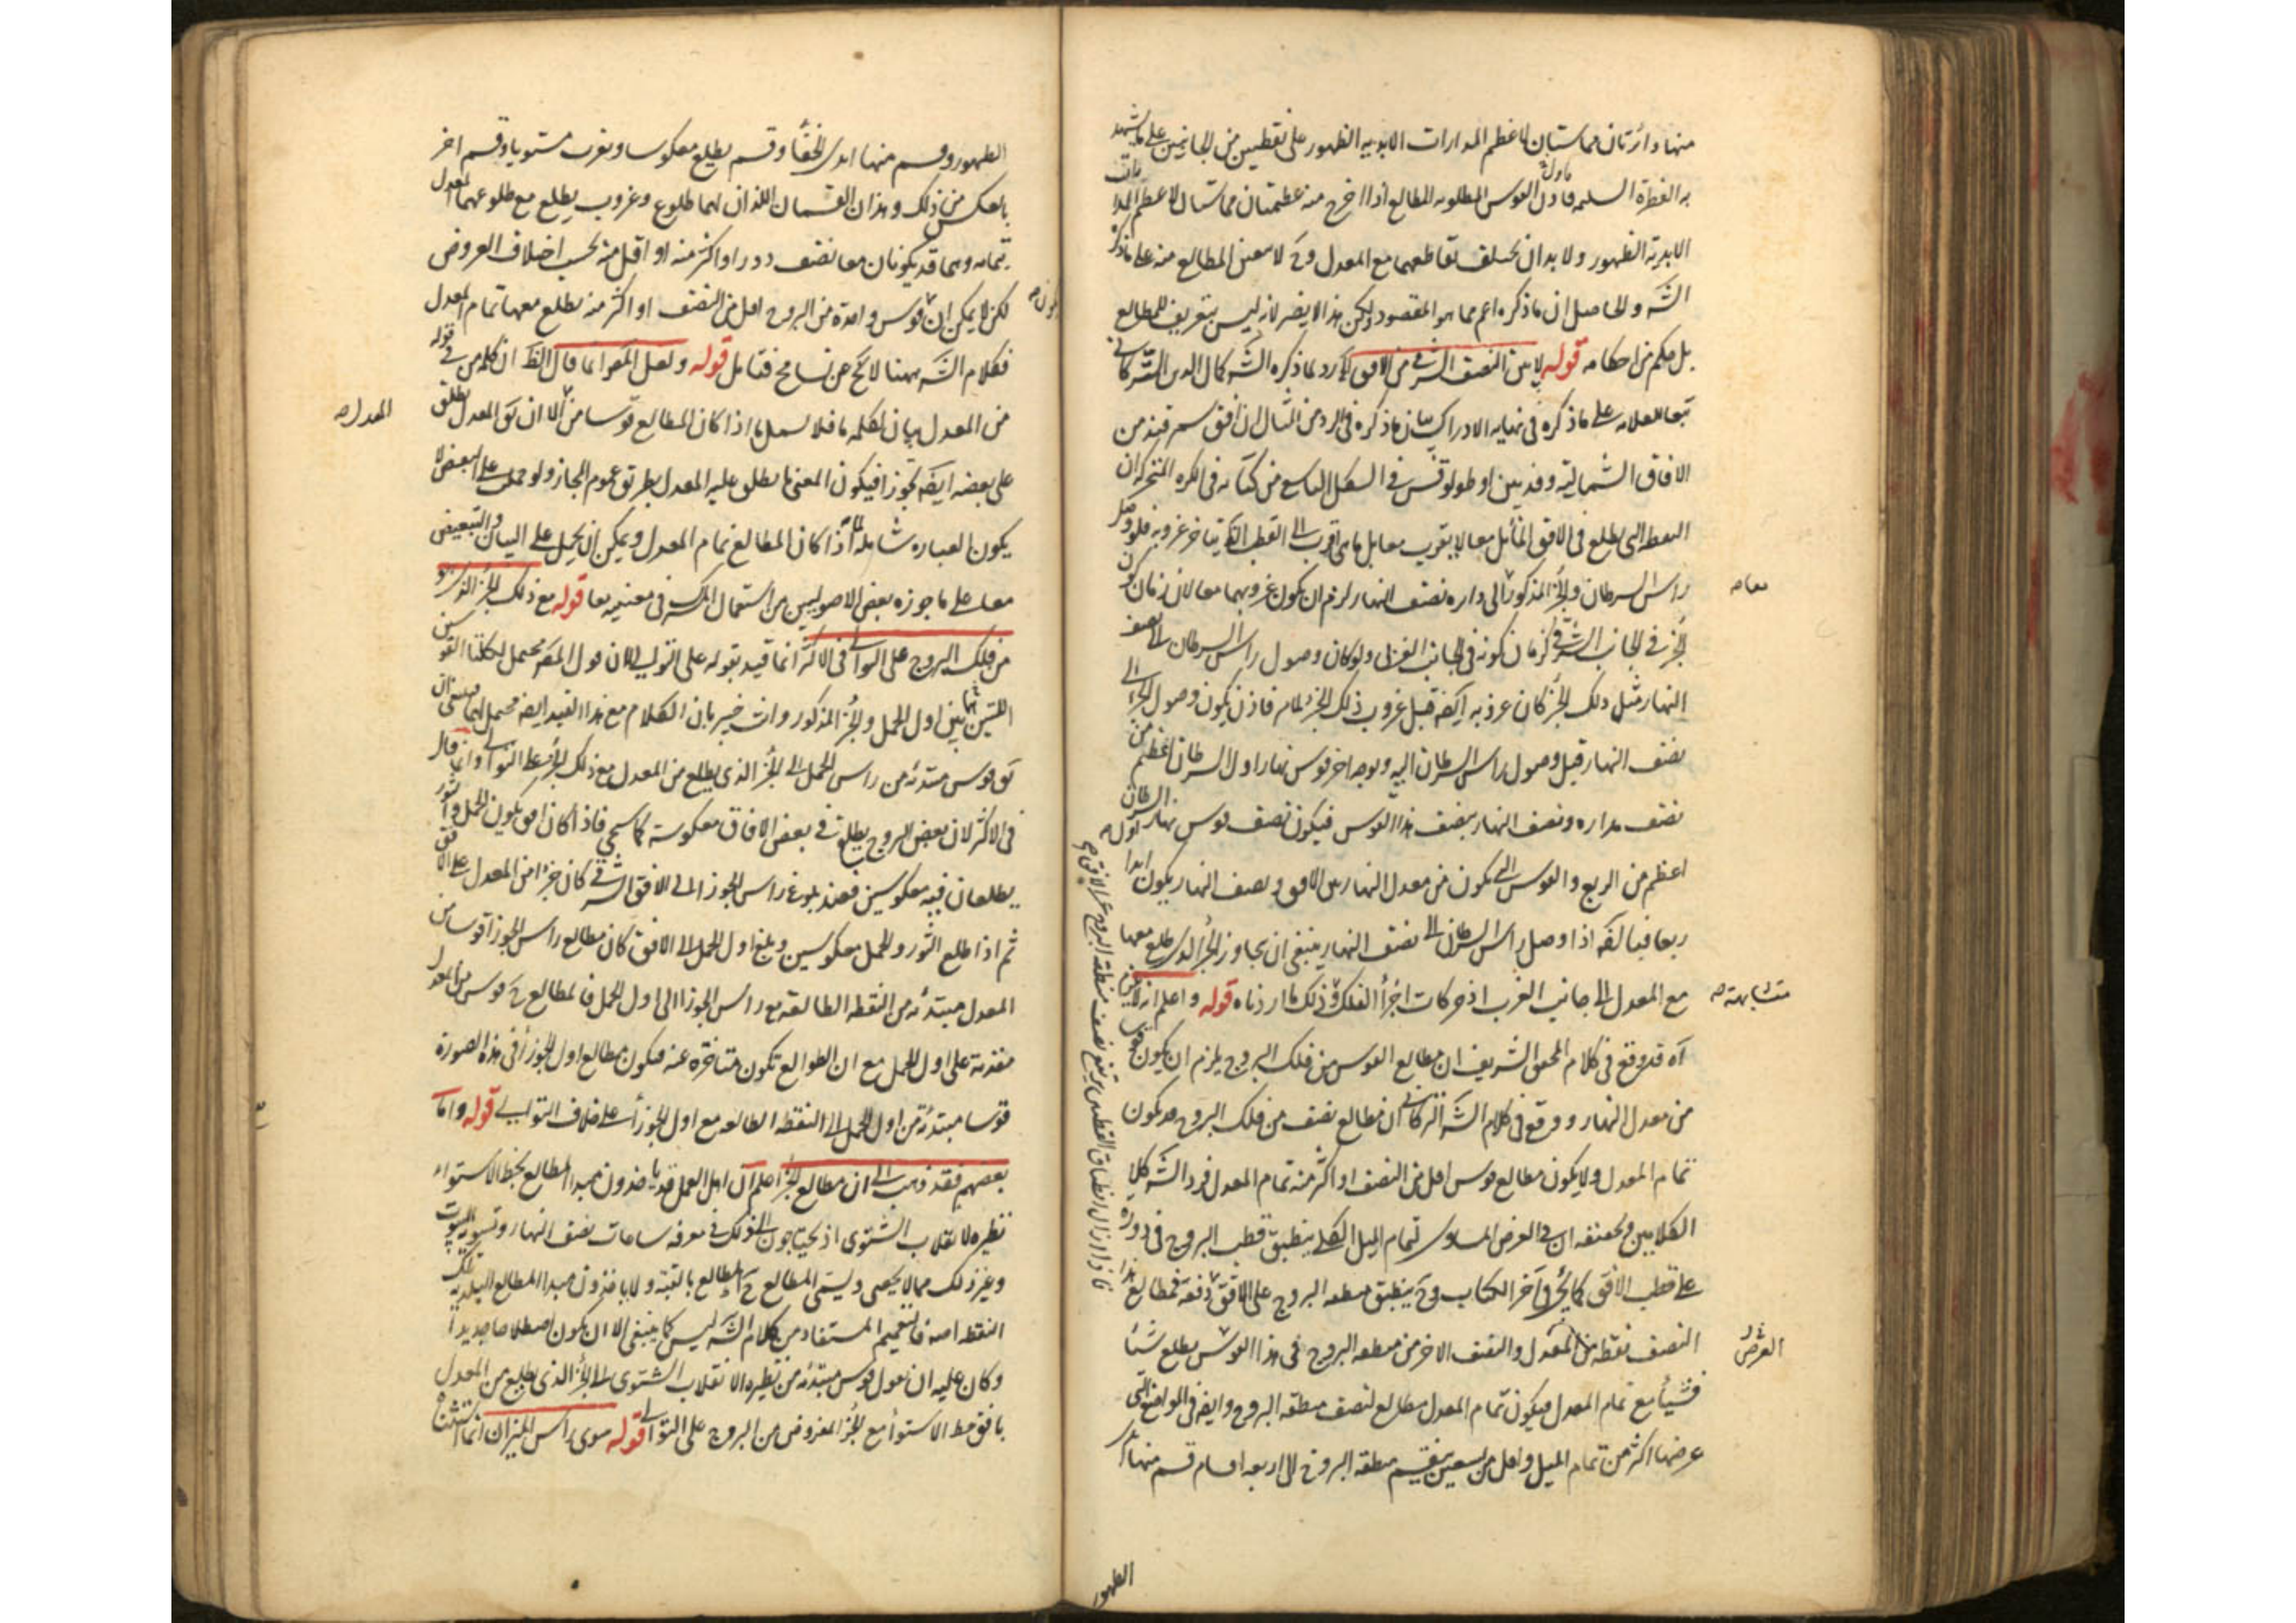 منها دائرتان مماستان لاعظم المدارات الابدية الظهور على نقطتين من الجانبين على ما يشهد
به الفطرة السليمة فاول القوس المطلوبة المطالع اذا اخرج منه عظيمتان مماستان لاعظم المدارات
الابدية الظهور ولا بد ان يختلف تقاطعهما مع المعدل وح لا يتعين المطالع منه على ما ذكره
الشه والحاصل ان ما ذكره اعم مما هو المقصود ولكن هذا لا يضر لانه ليس بتعريف للمطالع
بل حكم من احكامه قوله لا بين النصف الشرقي من الافق لا يرد ما ذكره الشه كمال الدين التركماني
تبعا للعلامة على ما ذكره في نهاية الادراك
الافاق الشمالية وقد بين اوطولوقس في الشكل التاسع من كتابه في الكره المتحركه ان
النقط التي تطلع في الافق المائل معا لا يغرب معا بل ما هي اقرب الى القطب الظ يتاخر غروبه فلو وصل
راس السرطان والجزء المذكور الى دايره نصف النهار لزم ان يكون غروبهما معا لان زمان كون
الجزء في الجانب الشرقي كزمان كونه في الجانب الغربي ولو كان وصول راس السرطان الى نصف
النهار مثل ذلك الجزء كان غروبه ايضه قبل غروب ذلك الجزء لما مر فاذن يكون وصول الجزء الى
نصف النهار قبل وصول راس السرطان اليه وبوجه اخر قوس نهار اول السرطان اعظم من
نصف مداره ونصف النهار ينصف هذا القوس فيكون نصف قوس نهار اول السرطان
اعظم من الربع والقوس التي يكون من معدل النهار بين الافق ونصف النهار يكون ابدا
ربعا فبالضه اذا وصل راس السرطان الى نصف النهار ينبغي ان يجاوز الجزء الذي يطلع معها
مع المعدل الى جانب الغرب اذ حركات اجزاء الفلك في ذلك ما اردناه قوله واعلم انه لا يكن
آه قد وقع في كلام المحقق الشريف ان مطالع القوس من فلك البروج يلزم ان يكون
من معدل النهار ووقع في كلام الشه التركماني ان مطالع نصف من فلك البروج قد يكون
تمام المعدل ولا يكون مطالع قوس اقل من النصف او اكثر منه تمام المعدل فرد الشه كلا
الكلامين وتحقيقه ان في العرض المساوي لتمام الميل الكلي ينطبق قطب البروج في دورة
على قطب الافق كما يجئ في آخر الكتاب وح ينطبق منطقه البروج على الافق دفعة فمطالع هذا
النصف نقطه من المعدل والنصف الاخر من منطقه البروج في هذا العرض يطلع شيئا
فشيئا مع تمام المعدل فيكون تمام المعدل مطالع لنصف منطقه البروج وايضه في المواضع التي
عرضها اكثر من تمام الميل واقل من تسعين ينقسم منطقه البروج الى اربعه اقسام قسم منها ابدى
معا صه
متشابهة صه
العرض
الظهور
الظهور وقسم منها ابدى الخفاء وقسم يطلع معكوسا ويغرب مستويا وقسم اخر
بالعكس من ذلك وهذان القسمان اللذان لهما طلوع وغروب يطلع مع طلوعهما المعدل
بتمامه وهما قد يكونان معا نصف دور او اكثر منه او اقل منه بحسب اختلاف العروض
لكن لا يمكن ان قوس واحدة من البروج اقل من النصف او اكثر منه يطلع معها تمام المعدل
فكلام الشه ههنا لا يخ عن تسامح فتامل قوله ولعل المصر انما قال الظ ان كلمه من في قوله
من المعدل بيان لكلمه ما فلا يشمل ما اذا كان المطالع قوسا من الا ان يق المعدل يطلق
على بعضه ايضه تجوزا فيكون المعنى ما يطلق عليه المعدل بطريق عموم المجاز ولو حمل على البعض لا
يكون العباره شامله لما اذا كان المطالع تمام المعدل ويمكن ان يحمل على البيان والتبعيض
معا على ما جوزه بعض الاصوليين من استعمال المشترك في معنييه معا قوله مع ذلك الجزء الذي هو
من فلك البروج على التوالي في الاكثر انما قيد بقوله على التوالي لان قول المصر محتمل لكلتا القوسين
اللتين بين اول الحمل والجزء المذكور وانت خبير بان الكلام مع هذا القيد ايضه محتمل لهما
يق قوس مبتدئه من راس الحمل الى الجزء الذي يطلع من المعدل مع ذلك الجزء على التوالي وانما قال
في الاكثر لان بعض البروج يطلع في بعض الافاق معكوسة كما سيجئ فاذا كان افق يكون الحمل والثور
يطلعان فيه معكوسين فعند بلوغ راس الجوزا الى الافق الشرقي كان جزءا من المعدل على الافق
ثم اذا طلع الثور والحمل معكوسين وبلغ اول الحمل الى الافق كان مطالع راس الجوزا قوسا من
المعدل مبتدئه من النقطه الطالعه مع راس الجوزا الى اول الحمل فالمطالع ح قوس من المعدل
متقدمة على اول الحمل مع ان الطوالع تكون متاخره عنه فيكون مطالع اول الجوزا في هذه الصورة
قوسا مبتدئة من اول الحمل الى النقطه الطالعه مع اول الجوزا على خلاف التوالي قوله واما
بعضهم فقد ذهب الى ان مطالع الجزء اعلم ان اهل العمل قد ياخذون مبدا المطالع بخط الاستواء
نظيره الانقلاب الشتوى اذ يحتاجون الى ذلك في معرفه ساعات نصف النهار وتسويه البيوت
وغير ذلك مما لا يحصى ويسمى المطالع ح المطالع بالقبة ولا ياخذون مبدا المطالع البلديه تلك
النقطه اصه فالتعميم المستفاد من كلام الشه ليس كما ينبغي الا ان يكون اصطلاحا جديدا
وكان عليه ان يقول قوس مبتدئه من نظيره الانقلاب الشتوى الى الجزء الذي يطلع من المعدل
بافق خط الاستواء مع الجزء المفروض من البروج على التوالي قوله سوى راس الميزان انما استثناه
المعدل صه